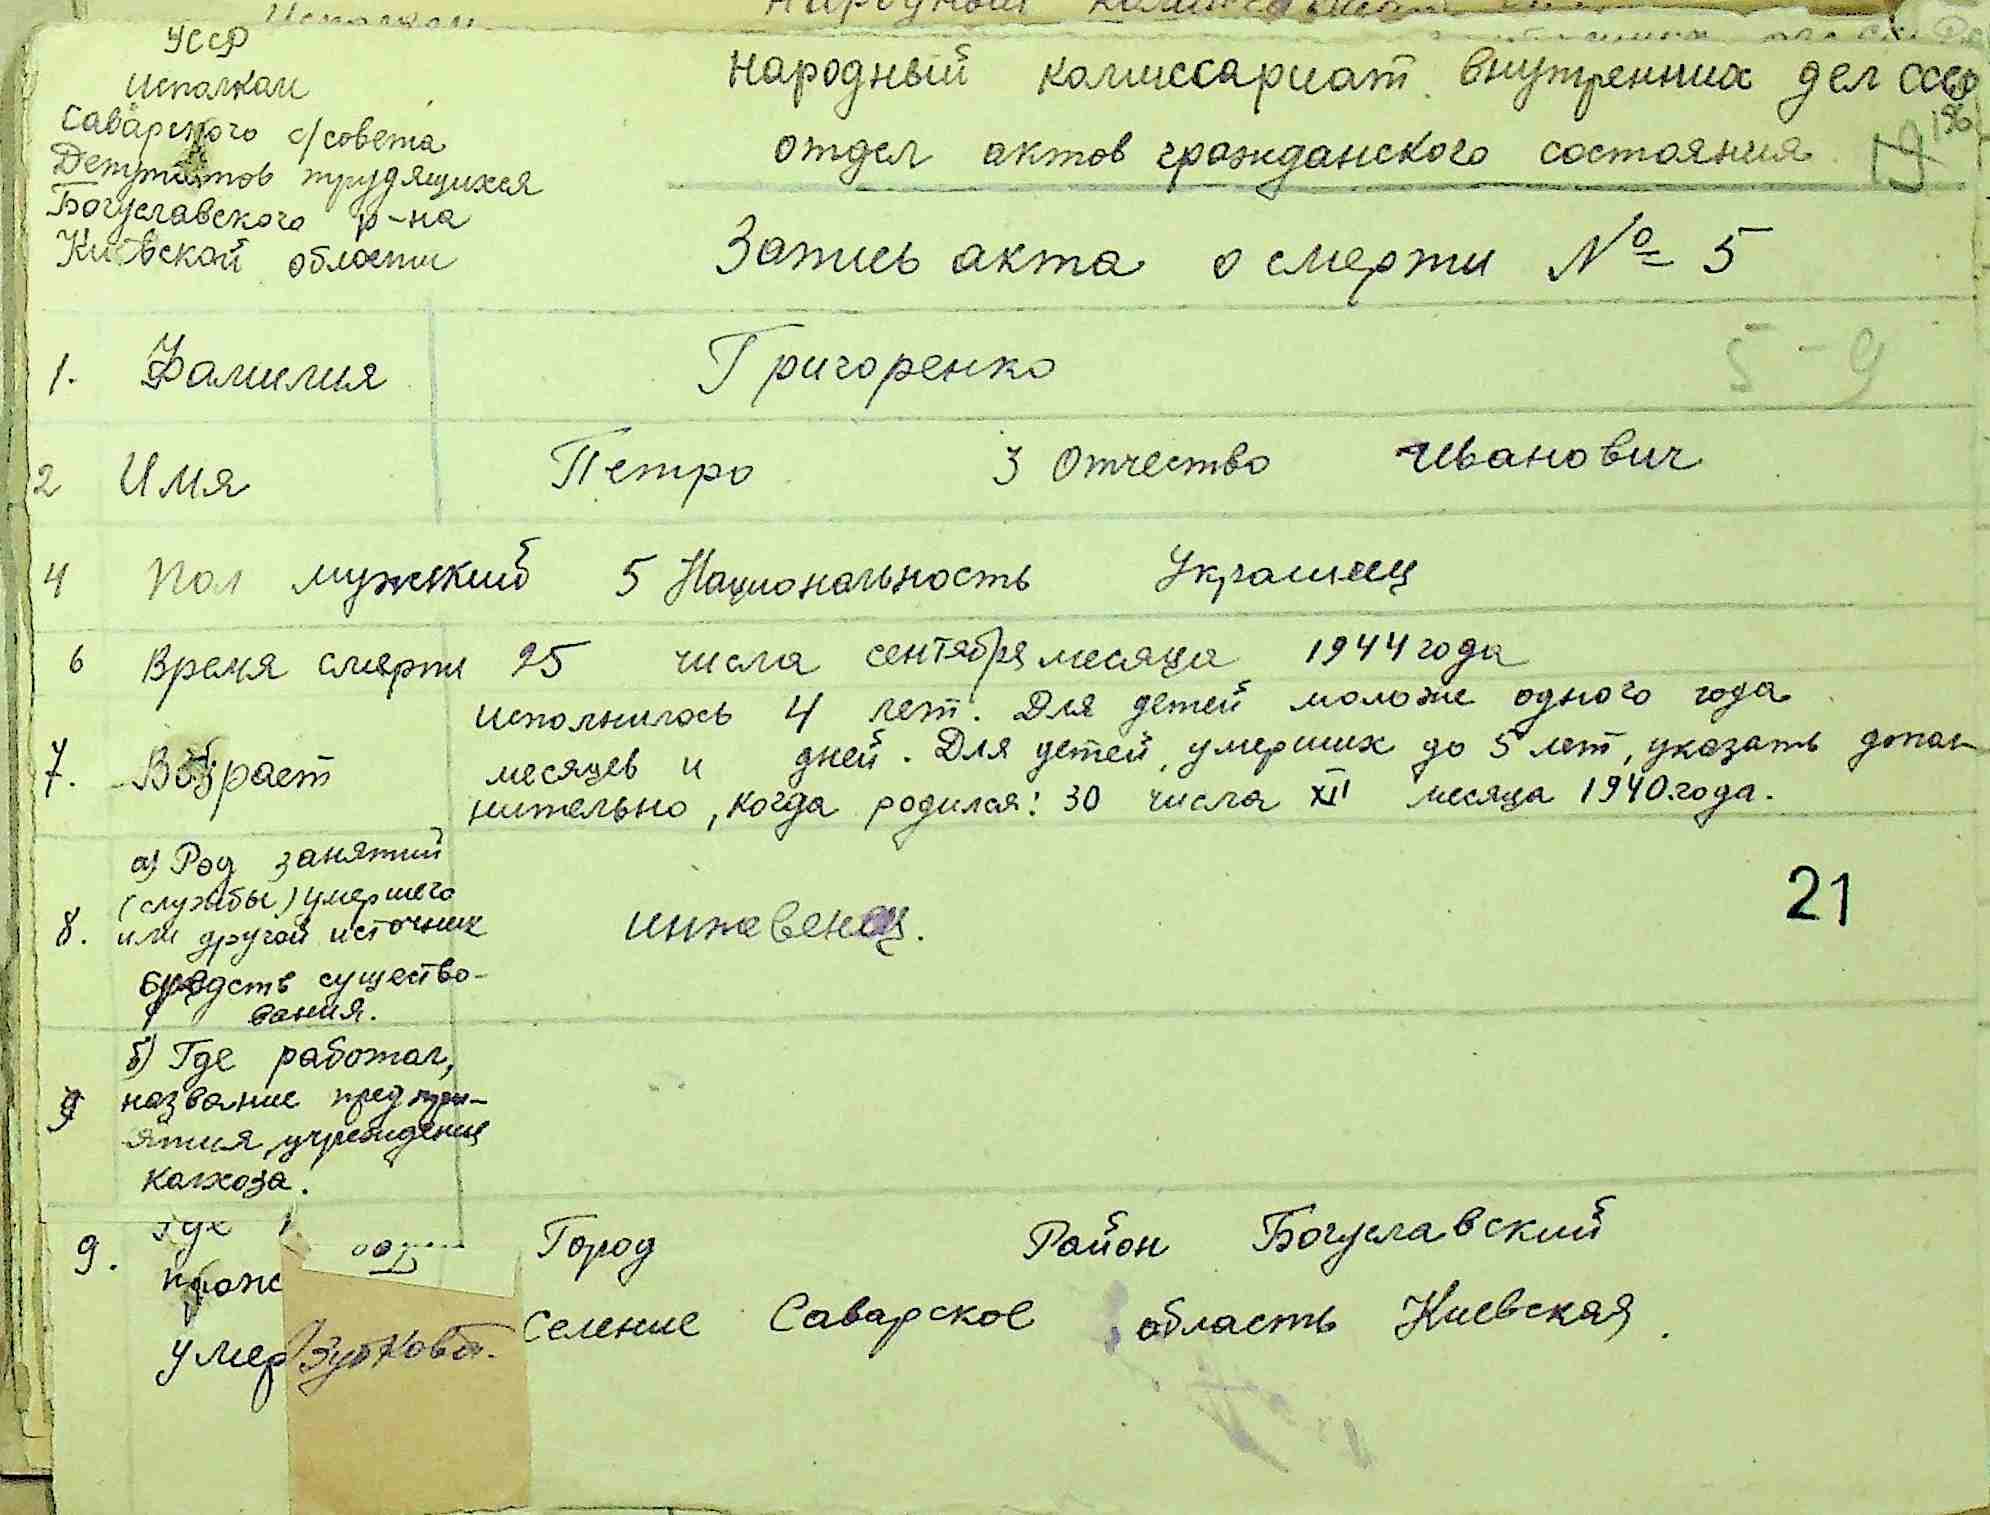 УССР
Исполком
Саварского с/совета
Депутатов трудящихся
Богуславского р-на
Киевской области
Народный комиссариат внутренних дел СССР
отдел актов гражданского состояния
Запись акта о смерти № 5
1. Фамилия Григоренко
5-9
2 Имя Петро 3 Отчество Иванович
4 Пол мужский 5 Национальность Украинец
6 Время смерти 25 числа сентября месяца 1944 года
7. Возраст
исполнилось 4 лет. Для детей моложе одного года
месяцев и дней. Для детей, умерших до 5 лет, указать допол-
нительно, когда родился: 30 числа XII месяца 1940 года.
8.
а) Род занятий
(службы) умершего
или другой источник
средств существо-
вания.
иждевенец.
21
9
б) Где работал,
название предпри-
ятия, учреждения
колхоза.
9. Где
прож
умер
Зубкова.
Город Район Богуславский
Селение Саварское область Киевская.